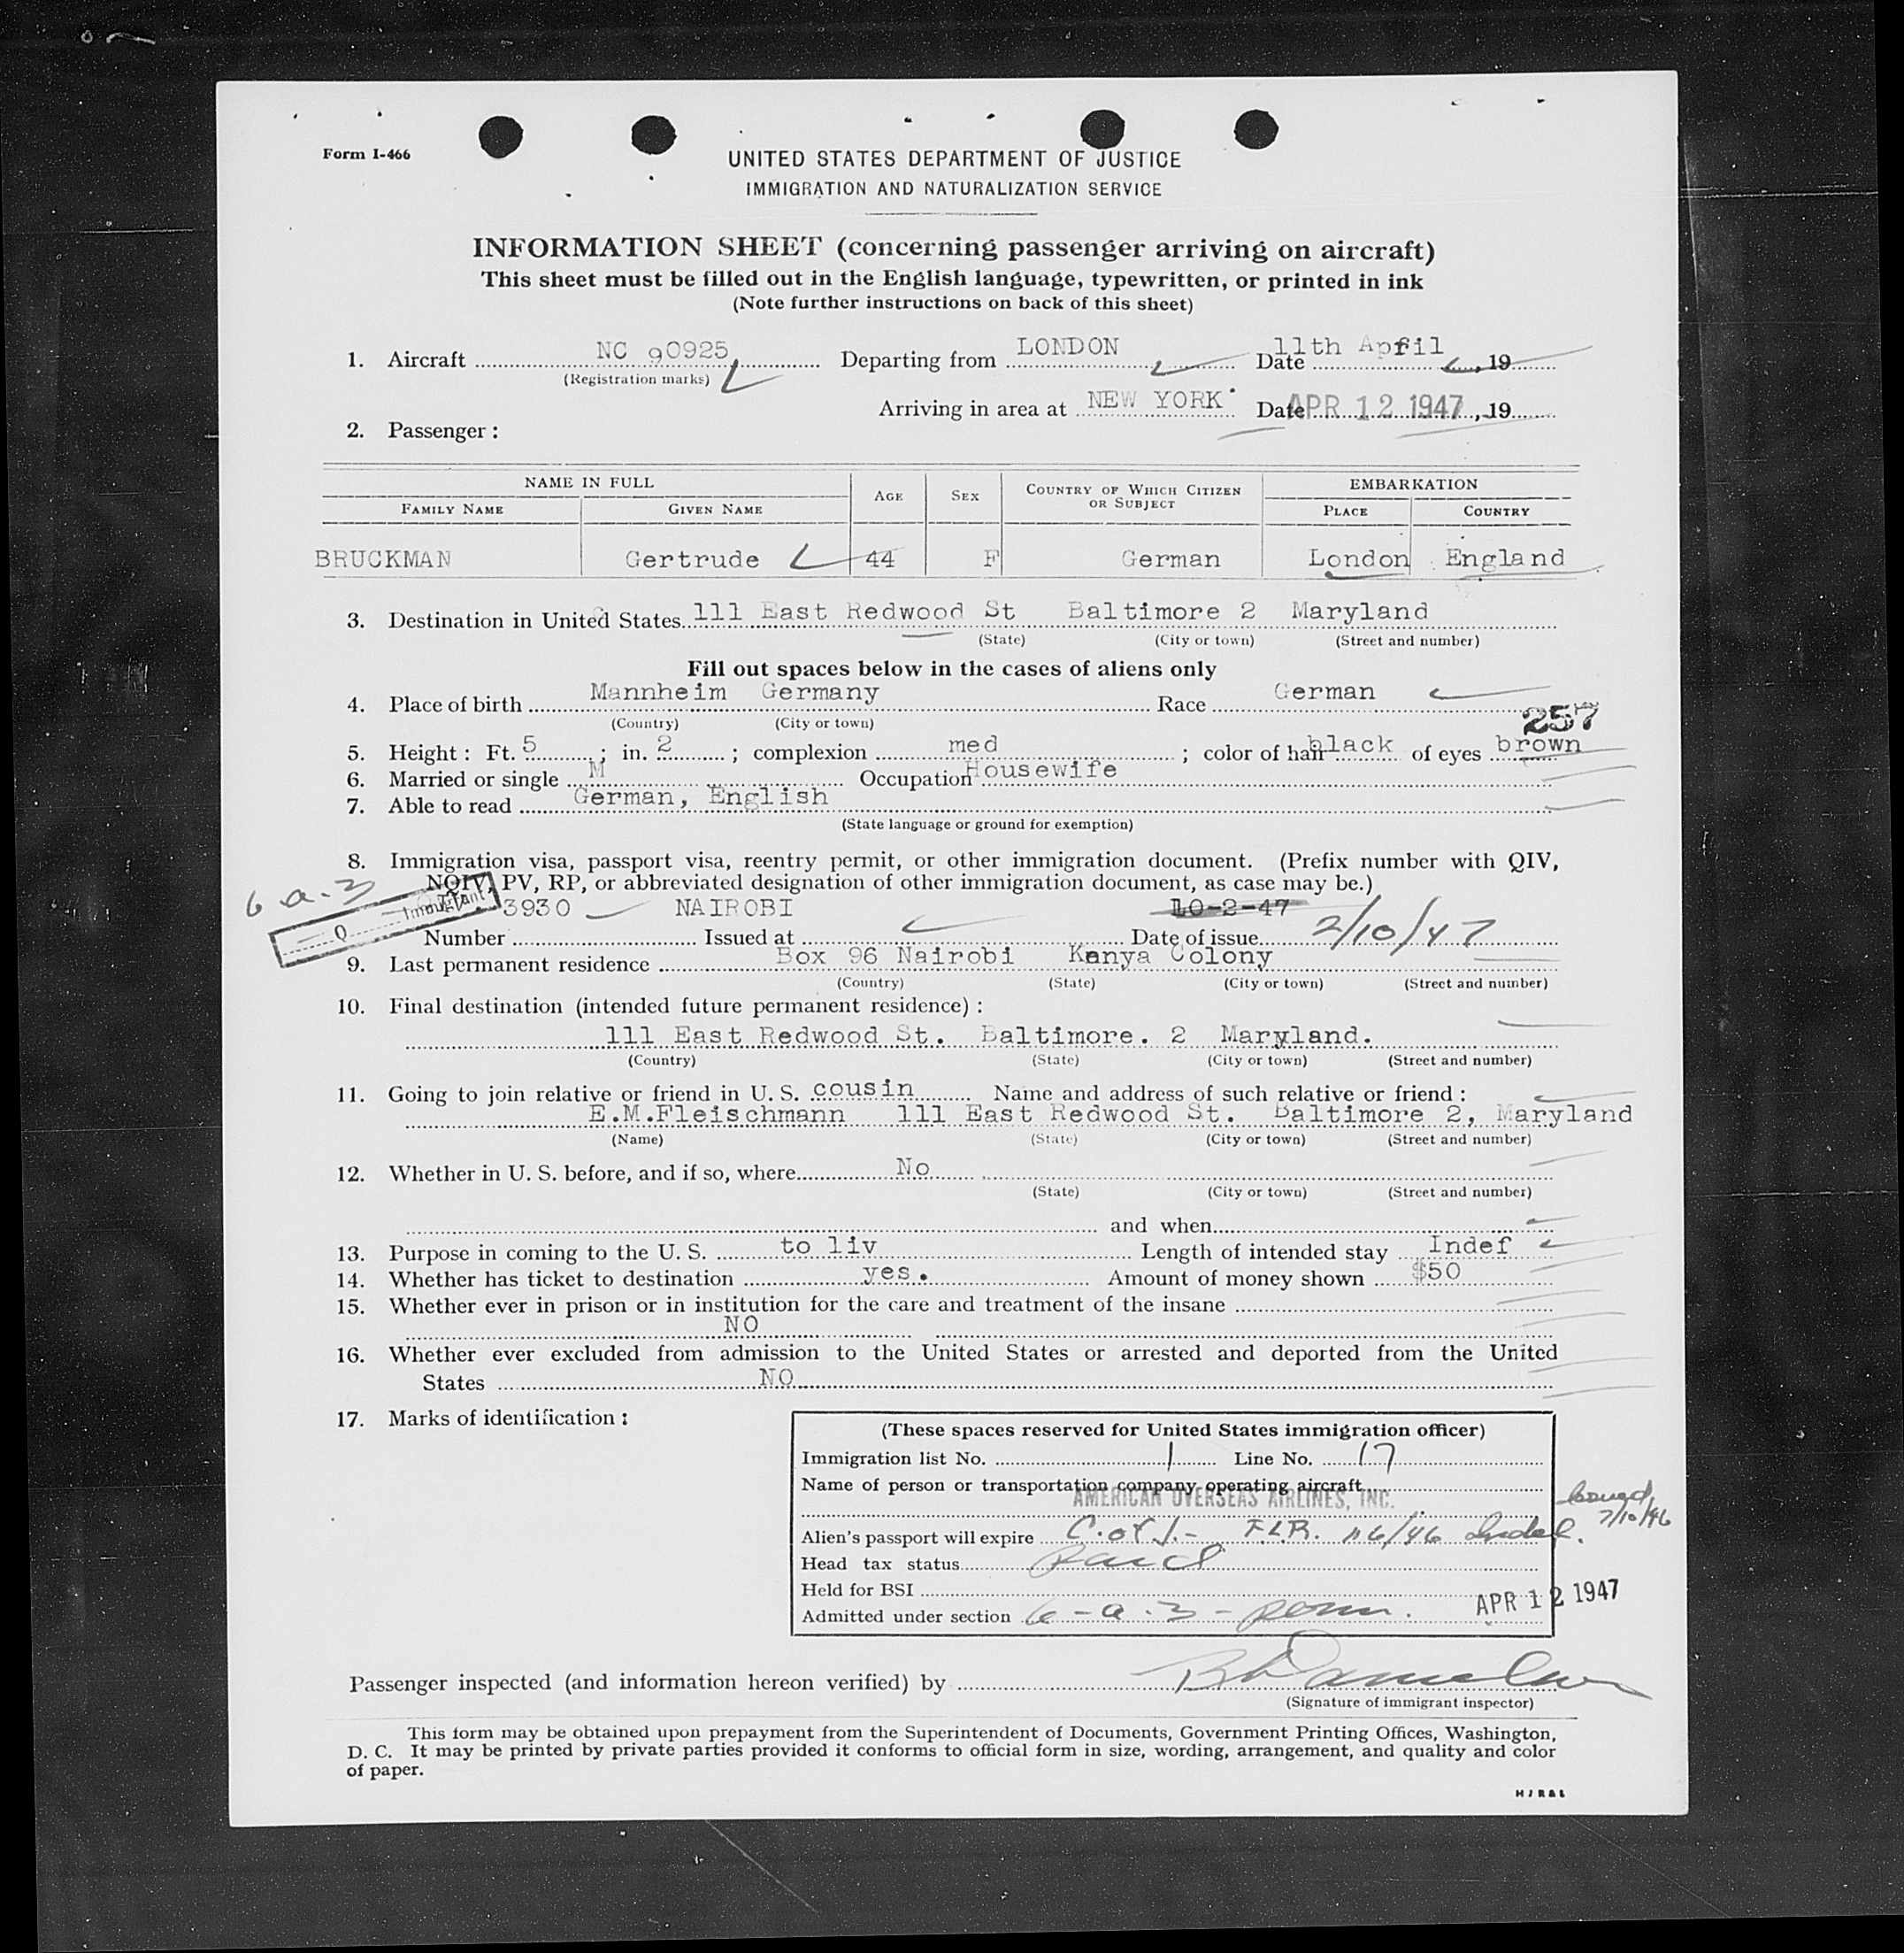 Form I-466
UNITED STATES DEPARTMENT OF JUSTICE
IMMIGRATION AND NATURALIZATION SERVICE
INFORMATION SHEET (concerning passenger arriving on aircraft)
This sheet must be filled out in the English language, typewritten, or printed in ink
(Note further instructions on back of this sheet)
1. Aircraft NC 90925 Departing from LONDON Date 11th April, 19
(Registration marks)
Arriving in area at NEW YORK Date APR 12 1947, 19
2. Passenger:
NAME IN FULL AGE SEX COUNTRY OF WHICH CITIZEN OR SUBJECT EMBARKATION
FAMILY NAME GIVEN NAME PLACE COUNTRY
BRUCKMAN Gertrude 44 F German London England
3. Destination in United States 111 East Redwood St Baltimore 2 Maryland
(State) (City or town) (Street and number)
Fill out spaces below in the cases of aliens only
4. Place of birth Mannheim Germany Race German
(Country) (City or town)
257
5. Height: Ft. 5; in. 2; complexion med; color of hair black of eyes brown
6. Married or single M Occupation Housewife
7. Able to read German, English
(State language or ground for exemption)
8. Immigration visa, passport visa, reentry permit, or other immigration document. (Prefix number with QIV,
NQIV, PV, RP, or abbreviated designation of other immigration document, as case may be.)
6 a-3
Q Immigrant
3930 NAIROBI 10-2-47
Number Issued at Date of issue 2/10/47
9. Last permanent residence Box 96 Nairobi Kenya Colony
(Country) (State) (City or town) (Street and number)
10. Final destination (intended future permanent residence):
111 East Redwood St. Baltimore. 2 Maryland.
(Country) (State) (City or town) (Street and number)
11. Going to join relative or friend in U. S. cousin Name and address of such relative or friend:
E.M.Fleischmann 111 East Redwood St. Baltimore 2, Maryland
(Name) (State) (City or town) (Street and number)
12. Whether in U. S. before, and if so, where No
(State) (City or town) (Street and number)
and when
13. Purpose in coming to the U. S. to liv Length of intended stay Indef
14. Whether has ticket to destination yes. Amount of money shown $50
15. Whether ever in prison or in institution for the care and treatment of the insane
NO
16. Whether ever excluded from admission to the United States or arrested and deported from the United
States NO
17. Marks of identification:
(These spaces reserved for United States immigration officer)
Immigration list No. 1 Line No. 17
Name of person or transportation company operating aircraft
AMERICAN OVERSEAS AIRLINES, INC.
7/10/46
Alien's passport will expire C. of I.- F.L.R. 116/46 Indef.
Head tax status Paid
Held for BSI
Admitted under section 6-a-3-perm. APR 12 1947
Passenger inspected (and information hereon verified) by
(Signature of immigrant inspector)
This form may be obtained upon prepayment from the Superintendent of Documents, Government Printing Offices, Washington,
D. C. It may be printed by private parties provided it conforms to official form in size, wording, arrangement, and quality and color
of paper.